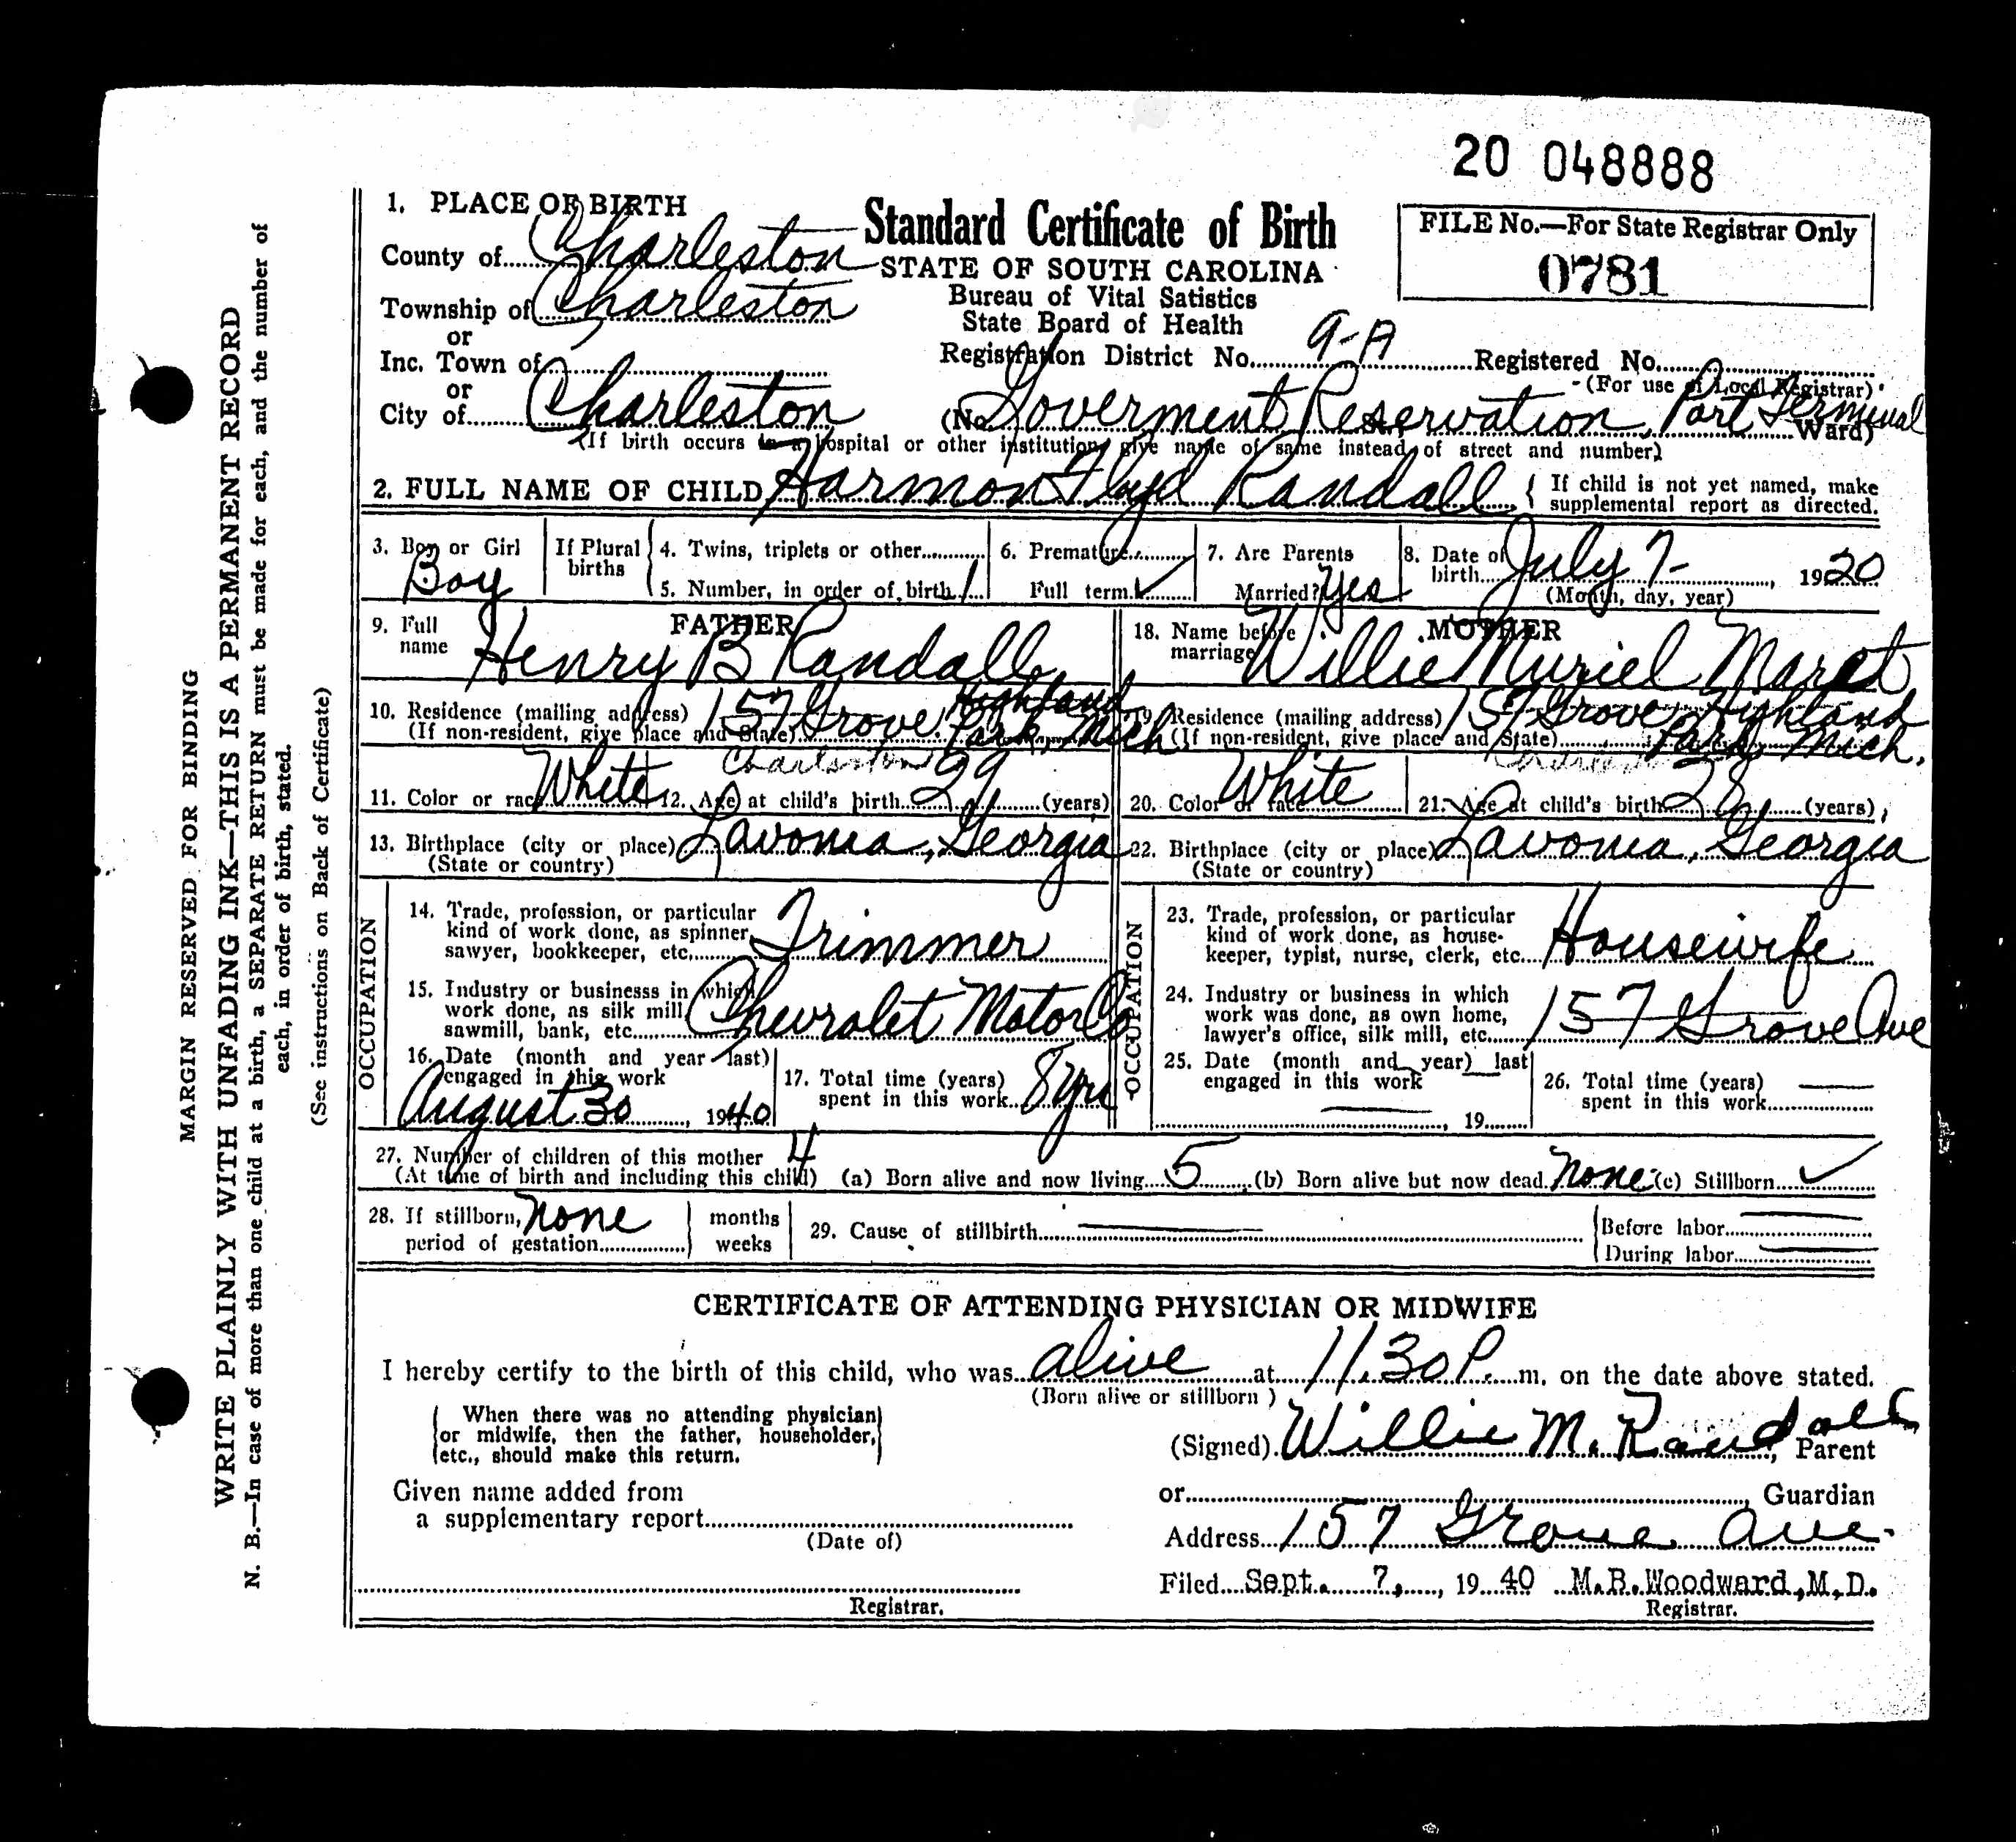 20 048888
1. PLACE OF BIRTH
Standard Certificate of Birth
FILE No.—For State Registrar Only
County of Charleston
STATE OF SOUTH CAROLINA
0781
Township of Charleston
Bureau of Vital Satistics
State Board of Health
or
Inc. Town of
Registration District No. 9-A Registered No.
(For use of Local Registrar)
or
City of Charleston (No. Goverment Reservation, Port Terminal Ward)
(If birth occurs in a hospital or other institution, give name of same instead of street and number)
2. FULL NAME OF CHILD Harmon Floyd Randall { If child is not yet named, make
supplemental report as directed.
3. Boy or Girl Boy
If Plural births
4. Twins, triplets or other
5. Number, in order of birth 1
6. Premature
Full term ✓
7. Are Parents
Married? Yes
8. Date of
birth July 7- 1920
(Month, day, year)
FATHER
9. Full
name Henry B Randall
10. Residence (mailing address) 157 Grove Highland
(If non-resident, give place and State) Park, Mich
Charleston
11. Color or race White 12. Age at child's birth 29 (years)
13. Birthplace (city or place) Lavonia, Georgia
(State or country)
OCCUPATION
14. Trade, profession, or particular
kind of work done, as spinner,
sawyer, bookkeeper, etc. Trimmer
15. Industry or businesss in which
work done, as silk mill,
sawmill, bank, etc. Chevrolet Motor Co
16. Date (month and year last)
engaged in this work
August 30, 1940
17. Total time (years)
spent in this work 8 yrs
MOTHER
18. Name before
marriage Willie Muriel Maret
19. Residence (mailing address) 157 Grove, Highland
(If non-resident, give place and State) Park, Mich.
20. Color or race White 21. Age at child's birth 28 (years)
22. Birthplace (city or place) Lavonia, Georgia
(State or country)
OCCUPATION
23. Trade, profession, or particular
kind of work done, as house-
keeper, typist, nurse, clerk, etc. Housewife
24. Industry or business in which
work was done, as own home,
lawyer's office, silk mill, etc. 157 Grove Ave
25. Date (month and year) last
engaged in this work
, 19
26. Total time (years)
spent in this work
27. Number of children of this mother 4
(At time of birth and including this child) (a) Born alive and now living 5 (b) Born alive but now dead None (c) Stillborn ✓
28. If stillborn, None
period of gestation
months
weeks
29. Cause of stillbirth
Before labor
During labor
CERTIFICATE OF ATTENDING PHYSICIAN OR MIDWIFE
I hereby certify to the birth of this child, who was alive at 11.30 P. m. on the date above stated.
(Born alive or stillborn )
When there was no attending physician
or midwife, then the father, householder,
etc., should make this return.
(Signed) Willie M. Randall, Parent
Given name added from
a supplementary report
(Date of)
or Guardian
Address 157 Grove Ave.
Filed Sept. 7, 1940 M.B.Woodward,M.D.
Registrar.
Registrar.
MARGIN RESERVED FOR BINDING
WRITE PLAINLY WITH UNFADING INK—THIS IS A PERMANENT RECORD
N. B.—In case of more than one child at a birth, a SEPARATE RETURN must be made for each, and the number of
each, in order of birth, stated.
(See instructions on Back of Certificate)